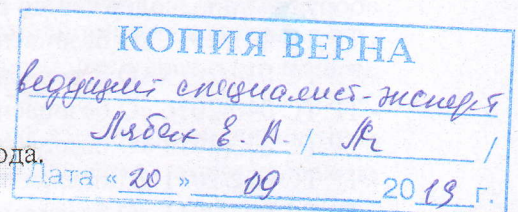 КОПИЯ ВЕРНА
ведущий специалист-эксперт
Лябах Е. А. / /
ода.
Дата «20» 09 2019 г.